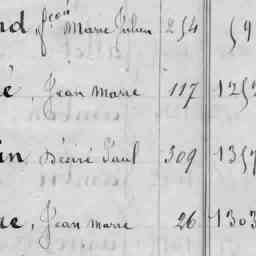 nd, fçois Marie Julien 254 59
é, Jean Marie 117 1252
in, Désiré Paul 309 1357
ue, Jean Marie 26 1303